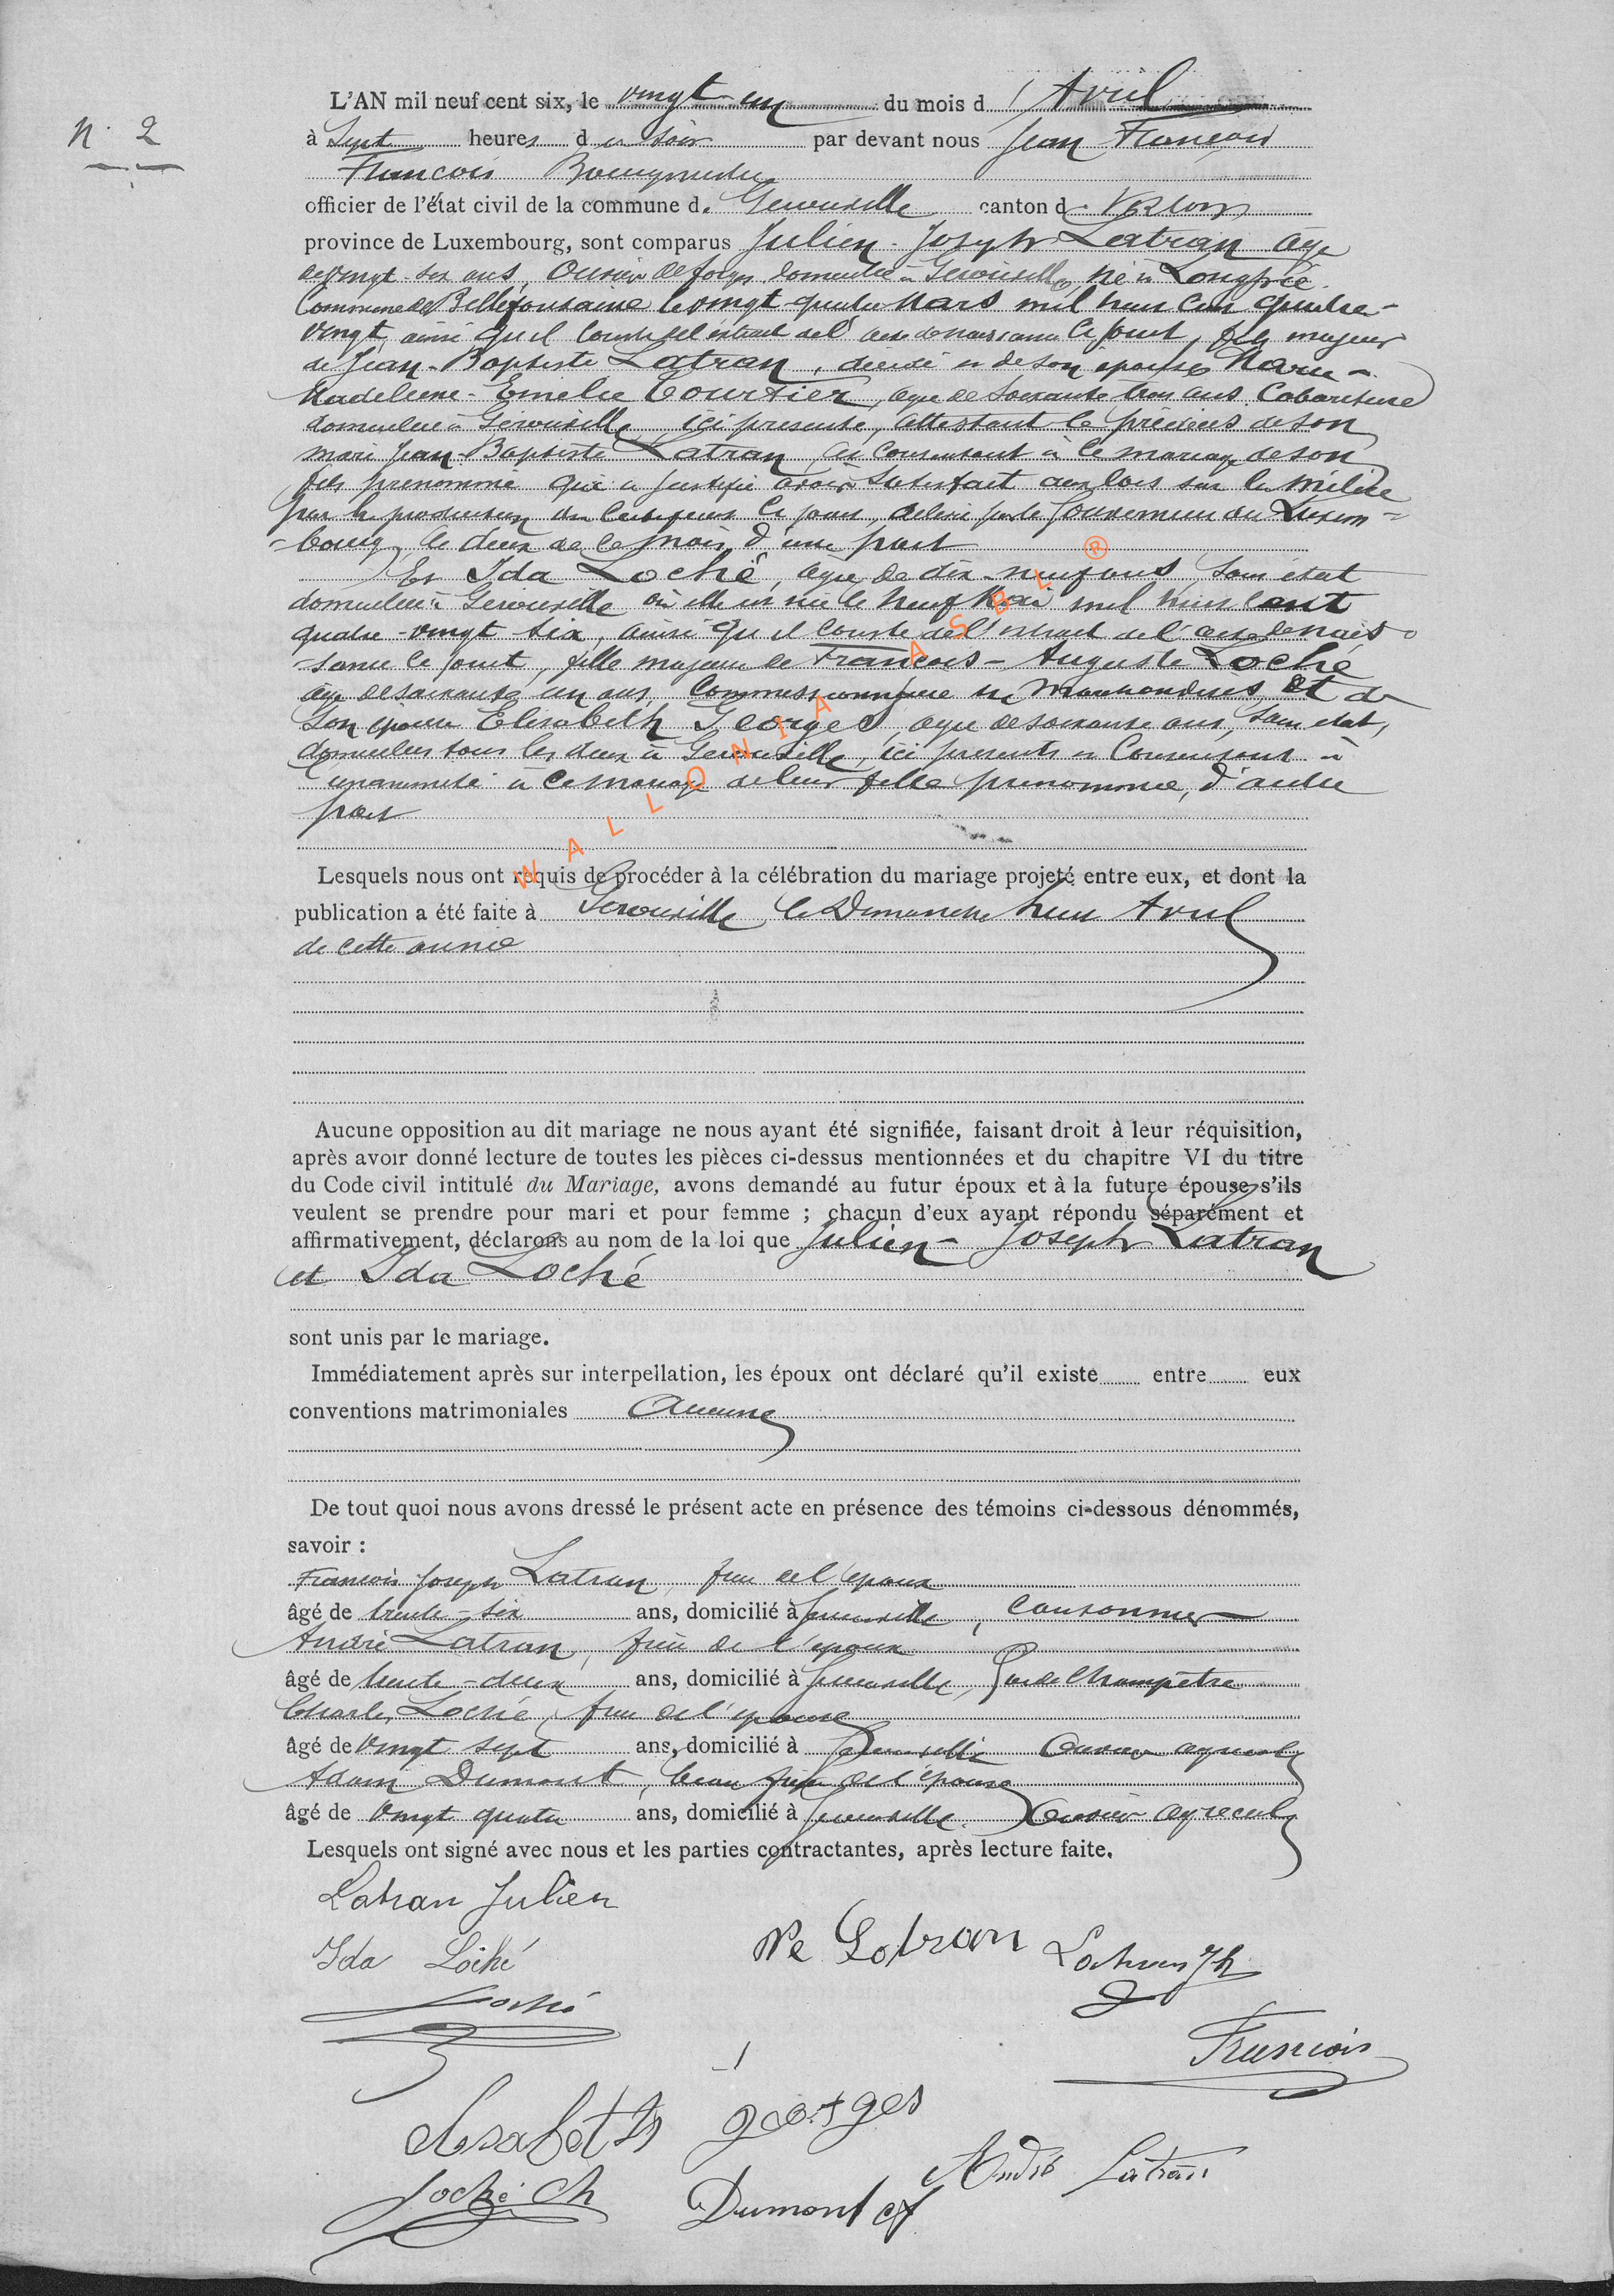 N° 2
L'AN mil neuf cent six, le vingt-un du mois d'Avril
à Sept heures du soir par devant nous Jean François
François
officier de l'état civil de la commune de Gérouville canton de Virton
province de Luxembourg, sont comparus Julien-Joseph Latran âgé
de vingt-six ans, ouvrier de forges, domicilié à Gérouville, né à
Commune de Bellefontaine le vingt-quatre Mars mil huit cent quatre-
vingt, ainsi qu'il conste de l'extrait de l'acte de naissance ci joint, fils majeur
de Jean-Baptiste Latran, décédé et de son épouse Marie-
Madeleine-Emelie Courtier, âgée de soixante trois ans Cabaretière
domiciliée à Gérouville ici présente, attestant le précédés de son
mari Jean-Baptiste Latran, et consentant à ce mariage de son
fils prénommé qui a justifié avoir satisfait aux lois sur la milice
par la production du certificat ci joint, délivré par le Gouverneur du Luxem=
=bourg, le deux de ce mois, d'une part
Et Ida Loché, âgée de dix-neuf ans, sans état
domiciliée à Gérouville où elle est née le neuf Mai mil huit cent
quatre-vingt six, ainsi qu'il conste de l'extrait de l'acte de nais-
sance ci joint, fille majeure de François-Auguste Loché
âgé de soixante un ans, Commissionnaire en Marchandises, et de
Son épouse Elisabeth Georges, âgée de soixante ans, sans état,
domiciliés tous les deux à Gérouville, ici présents et consentant à
l'unanimité à ce mariage de leur fille prénommée, d'autre
part
WALLONIA ASBL ®
Lesquels nous ont requis de procéder à la célébration du mariage projeté entre eux, et dont la
publication a été faite à Gérouville le Dimanche huit Avril
de cette année
Aucune opposition au dit mariage ne nous ayant été signifiée, faisant droit à leur réquisition,
après avoir donné lecture de toutes les pièces ci-dessus mentionnées et du chapitre VI du titre
du Code civil intitulé du Mariage, avons demandé au futur époux et à la future épouse s'ils
veulent se prendre pour mari et pour femme ; chacun d'eux ayant répondu séparément et
affirmativement, déclarons au nom de la loi que Julien-Joseph Latran
et Ida Loché
sont unis par le mariage.
Immédiatement après sur interpellation, les époux ont déclaré qu'il existe entre eux
conventions matrimoniales Aucune
De tout quoi nous avons dressé le présent acte en présence des témoins ci-dessous dénommés,
savoir :
François Joseph Latran, frère de l'époux
âgé de trente-six ans, domicilié à Gérouville, Cantonnier
André Latran, frère de l'époux
âgé de trente-deux ans, domicilié à Gérouville, Garde Champêtre
Charles Loché, frère de l'épouse
âgé de vingt sept ans, domicilié à Gérouville Ouvrier agricole
Adam Dumont, beau frère de l'épouse
âgé de vingt quatre ans, domicilié à Gérouville. Ouvrier agricole
Lesquels ont signé avec nous et les parties contractantes, après lecture faite.
Latran Julien
Ve Latran Latran Jh
Ida Loché
Loché
François
elisabeth georges
André Latran
Loché Ch Dumont